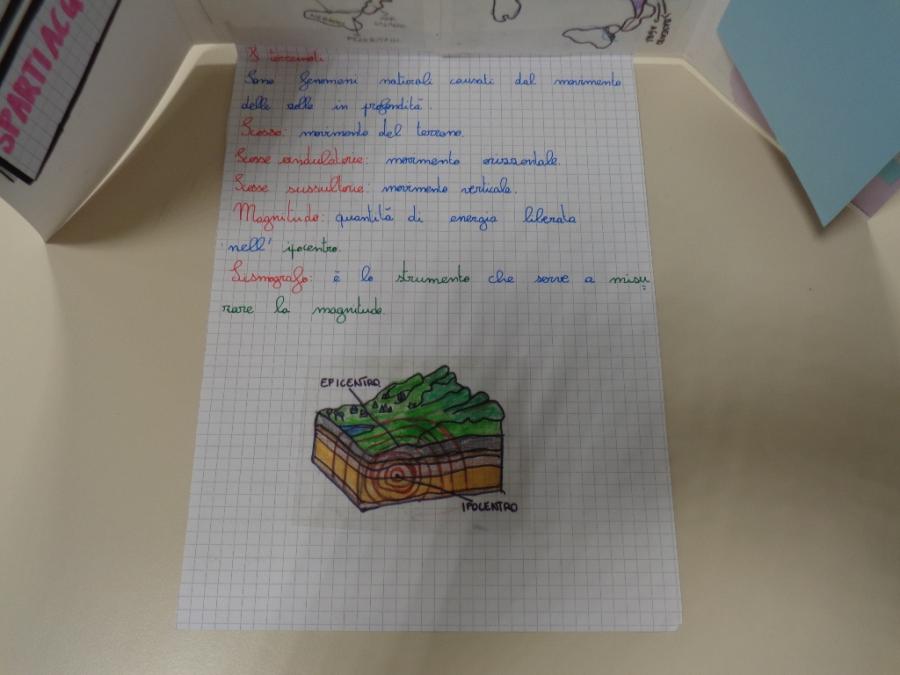 SPARTIACQ
I terremoti
Sono fenomeni naturali causati dal movimento
delle zolle in profondità.
Scossa: movimento del terreno.
Scosse ondulatorie: movimento orizzontale.
Scosse sussultorie: movimento verticale.
Magnitudo: quantità di energia liberata
nell' ipocentro.
Sismografo: è lo strumento che serve a misu
rare la magnitudo
EPICENTRO
IPOCENTRO